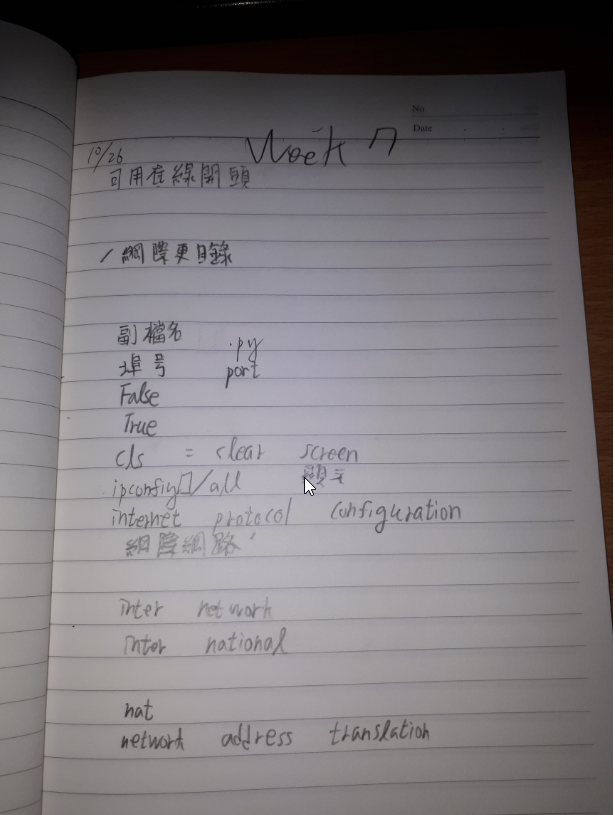 No
Date
10/26 Week 7
可用在線開頭
/ 網際更目錄
副檔名 .py
埠号 port
False
True
cls = clear screen
ipconfig□/all 顯示
internet protocol configuration
網際網路
inter network
inter national
nat
network address translation